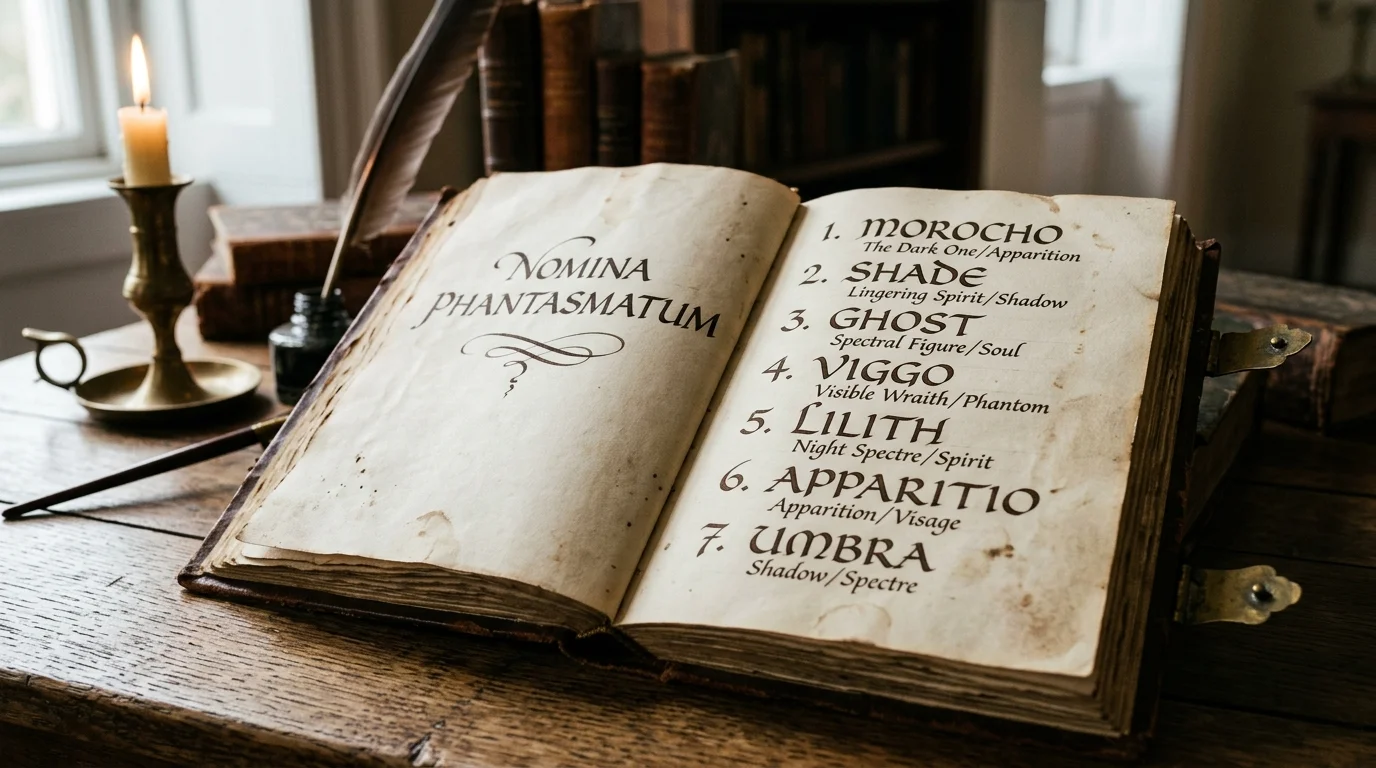 NOMINA
PHANTASMATUM
1. MOROCHO
The Dark One/Apparition
2. SHADE
Lingering Spirit/Shadow
3. GHOST
Spectral Figure/Soul
4. VIGGO
Visible Wraith/Phantom
5. LILITH
Night Spectre/Spirit
6. APPARITIO
Apparition/Visage
7. UMBRA
Shadow/Spectre